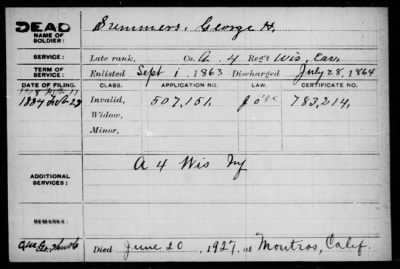 DEAD
NAME OF SOLDIER: Summers, George H.
SERVICE: Late rank, Co. A. 4 Reg't Wis, Cav,
TERM OF SERVICE: Enlisted Sept 1, 1863 Discharged July 28, 1864
DATE OF FILING. CLASS. APPLICATION NO. LAW. CERTIFICATE NO.
1884 Invalid, 507,151, 783,214,
Widow,
Minor,
ADDITIONAL SERVICES: A 4 Wis Inf
REMARKS:
Died June 20, 1927, at Montros, Calif.